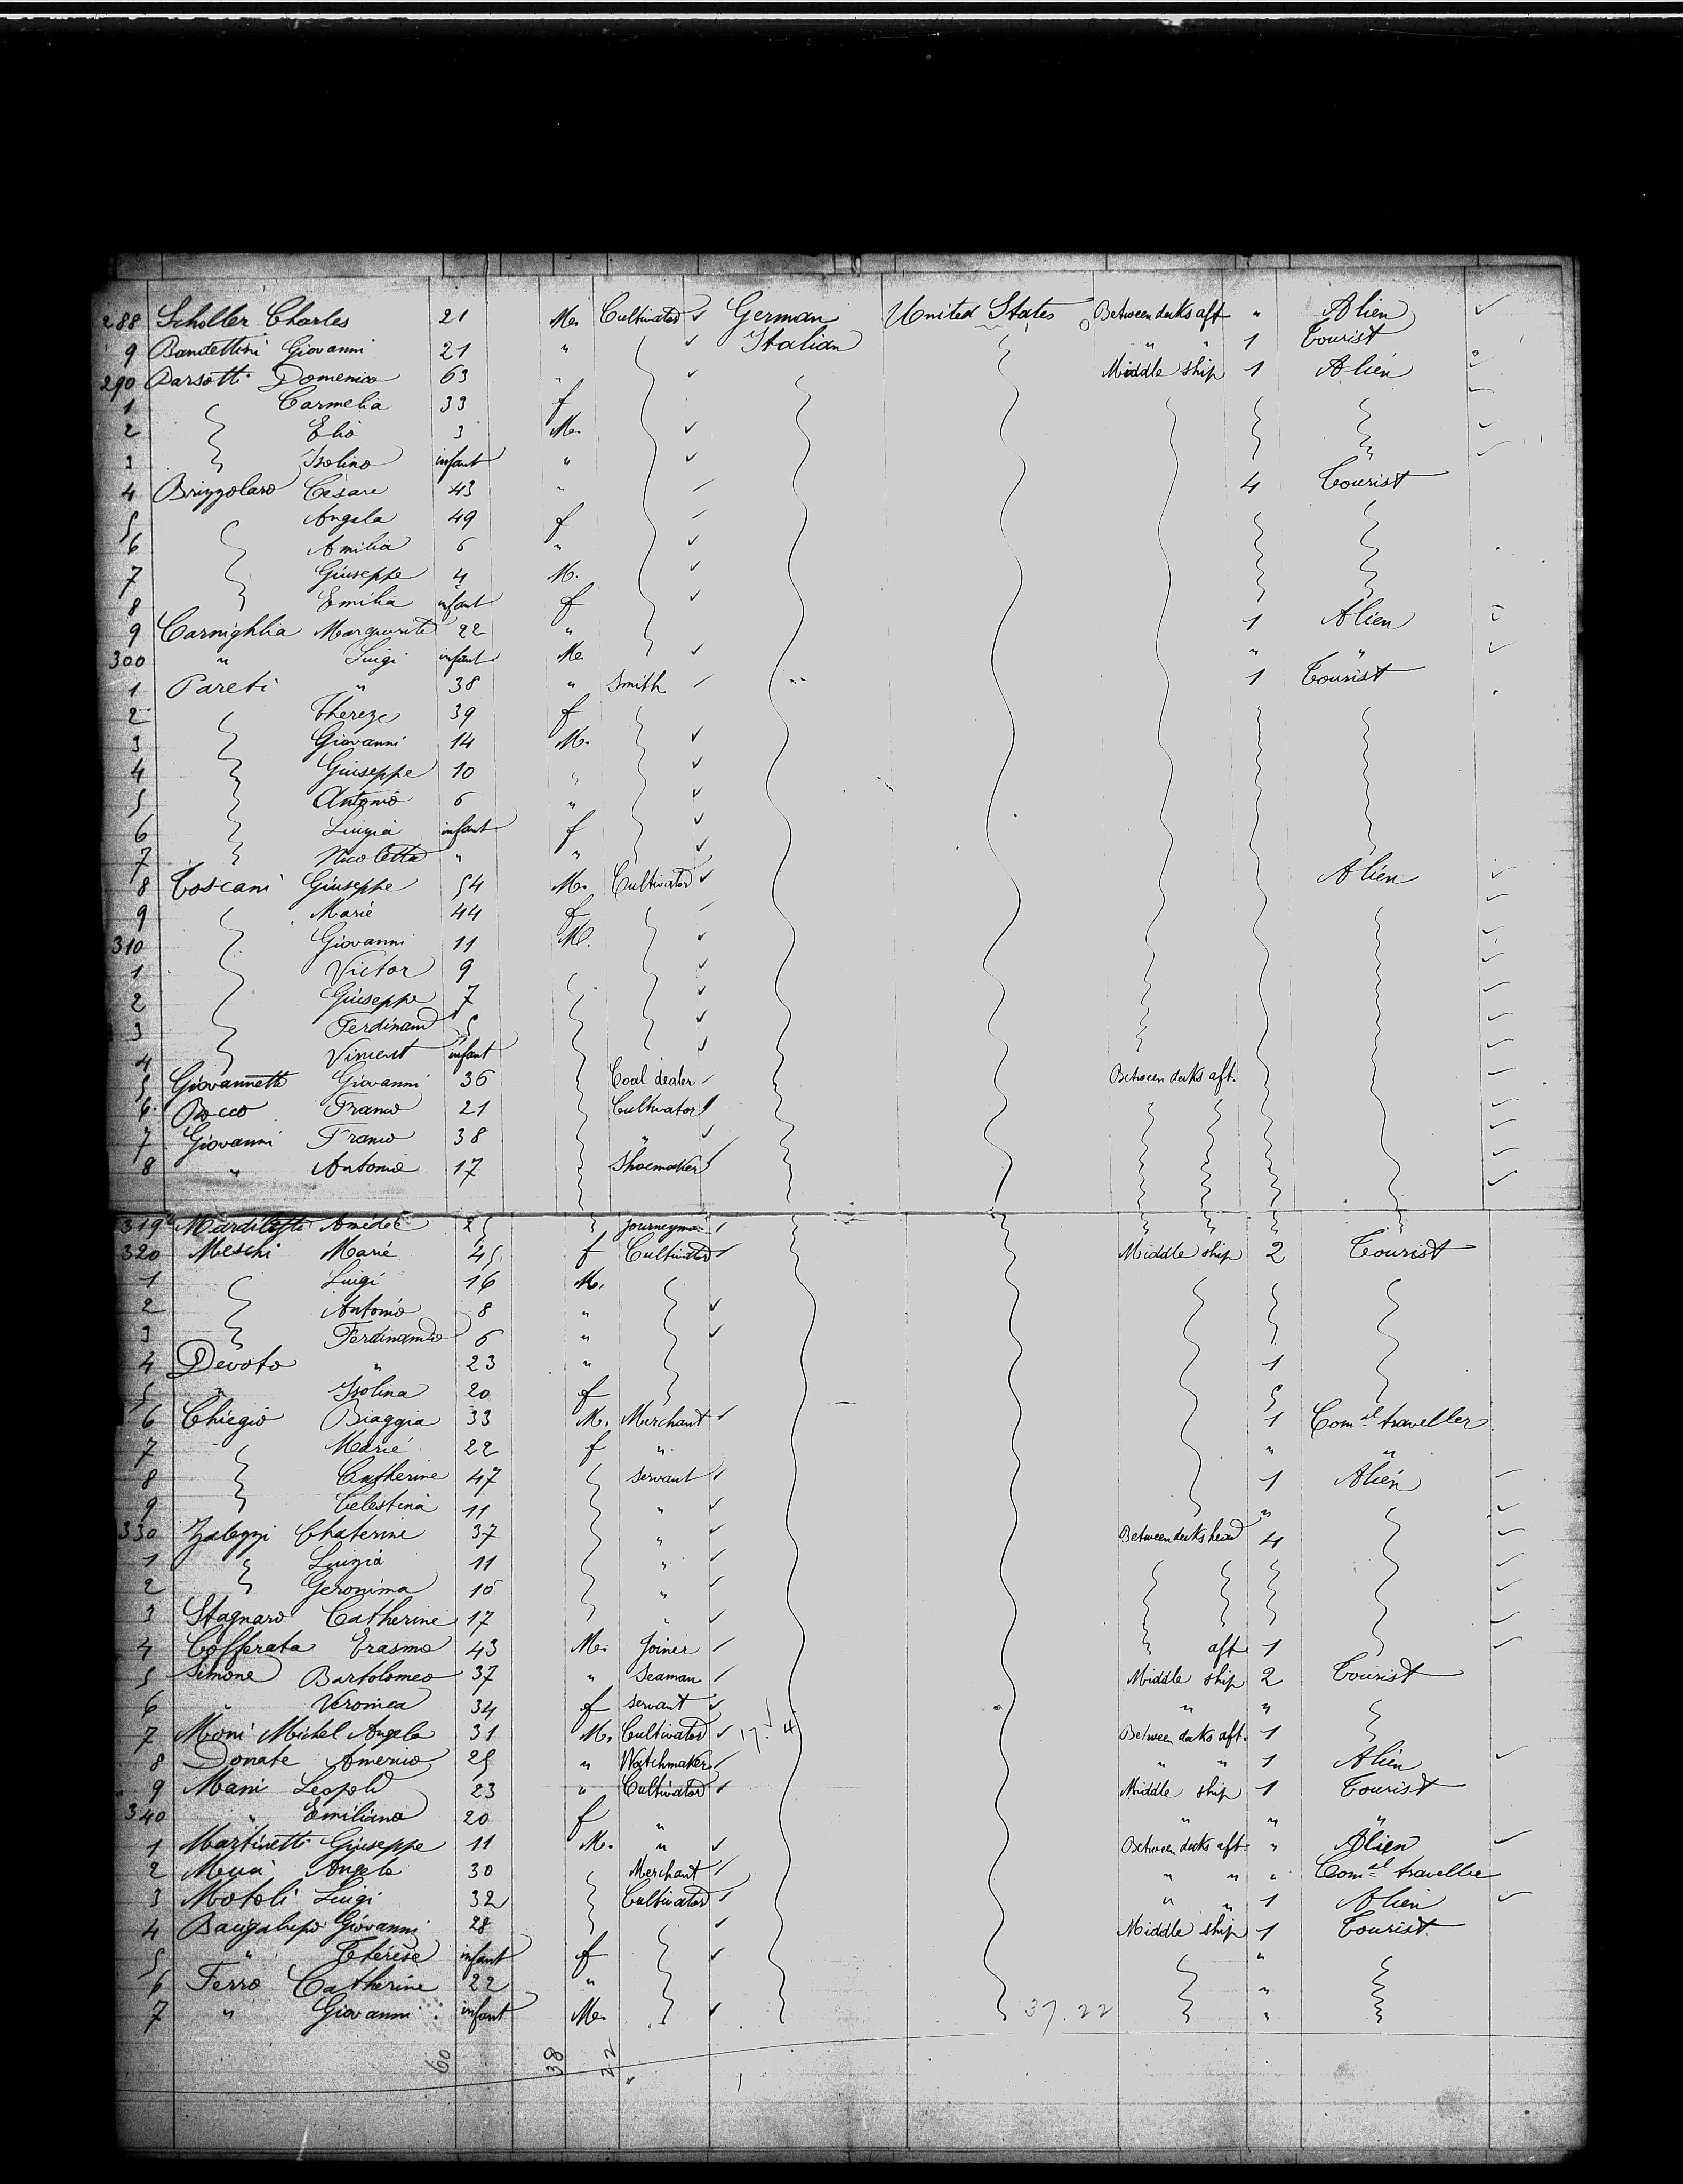 288 Scholler Charles 21 M. Cultivator ✓ German United States Between decks aft " Alien ✓
9 Bandettini Giovanni 21 " ✓ Italian " " 1 Tourist
290 Parsotti Domenico 63 " ✓ Middle ship 1 Alien
1 Carmelia 33 f ✓
2 Elio 3 M. ✓ ✓
3 Isolino infant " ✓ ✓
4 Brizzolaro Césare 43 " ✓ 4 Tourist
5 Angela 49 f ✓
6 Amilia 6 " ✓
7 Giuseppe 4 M. ✓
8 Emilia infant f ✓
9 Carnighlia Marguerite 22 " 1 Alien
300 " Luigi infant M. ✓ " " ✓
1 Pareti " 38 " Smith ✓ " 1 Tourist
2 Thereze 39 f
3 Giovanni 14 M. ✓
4 Giuseppe 10 " ✓
5 Antonio 6 " ✓
6 Luigia infant f ✓
7 Nicoletta " " ✓
8 Toscani Giuseppe 54 M. Cultivator ✓ Alien ✓
9 Marie 44 f ✓ ✓
310 Giovanni 11 M. ✓ ✓
1 Victor 9 ✓ ✓
2 Giuseppe 7 ✓ ✓
3 Ferdinand 5 ✓ ✓
4 Vincent infant ✓ ✓
5 Giovannetti Giovanni 36 Coal dealer ✓ Between decks aft. ✓
6 Rocco Franco 21 Cultivator ✓
7 Giovanni Franco 38 " ✓ ✓
8 " Antonio 17 Shoemaker ✓
319 Amédée 25 journeyman ✓
320 Meschi Marie 45 f Cultivator ✓ Middle ship 2 Tourist
1 Luigi 16 M.
2 Antonio 8 " ✓
3 Ferdinando 6 " ✓
4 Devoto " 23 " 1
5 " Isolina 20 f
6 Chiegio Biaggia 33 M. Merchant ✓ 1 Com.al traveller
7 Marie 22 f " " "
8 Catherine 47 servant ✓ 1 Alien ✓
9 Celestina 11 " ✓ " ✓
330 Chaterine 37 " ✓ Between decks head 4 ✓
1 Luigia 11 " ✓ ✓
2 Geronima 10 " ✓ ✓
3 Stagnaro Catherine 17 " ✓ ✓
4 Cofferata Erasmo 43 M. Joiner ✓ aft 1 ✓
5 Simone Bartolomeo 37 " Seaman ✓ Middle ship 2 Tourist
6 " Veronica 34 f servant ✓ " "
7 Moni Michel Angelo 31 M. Cultivator ✓ 17. 4 Between decks aft. 1
8 Donate Americo 25 " Watchmaker ✓ " " 1 Alien ✓
9 Mani Leopold 23 " Cultivator ✓ Middle ship 1 Tourist
340 " Emiliana 20 f " " " "
1 Martinetti Giuseppe 11 M. " ✓ Between decks aft " Alien ✓
2 Angelo 30 Merchant ✓ " " " Com.al traveller
3 Motoli Luigi 32 Cultivator ✓ " " 1 Alien ✓
4 Giovanni 28 ✓ Middle ship 1 Tourist
5 " Thérèse infant f ✓ "
6 Ferro Catherine 22 " "
7 " Giovanni infant M. ✓ 37.22 "
60 38 22